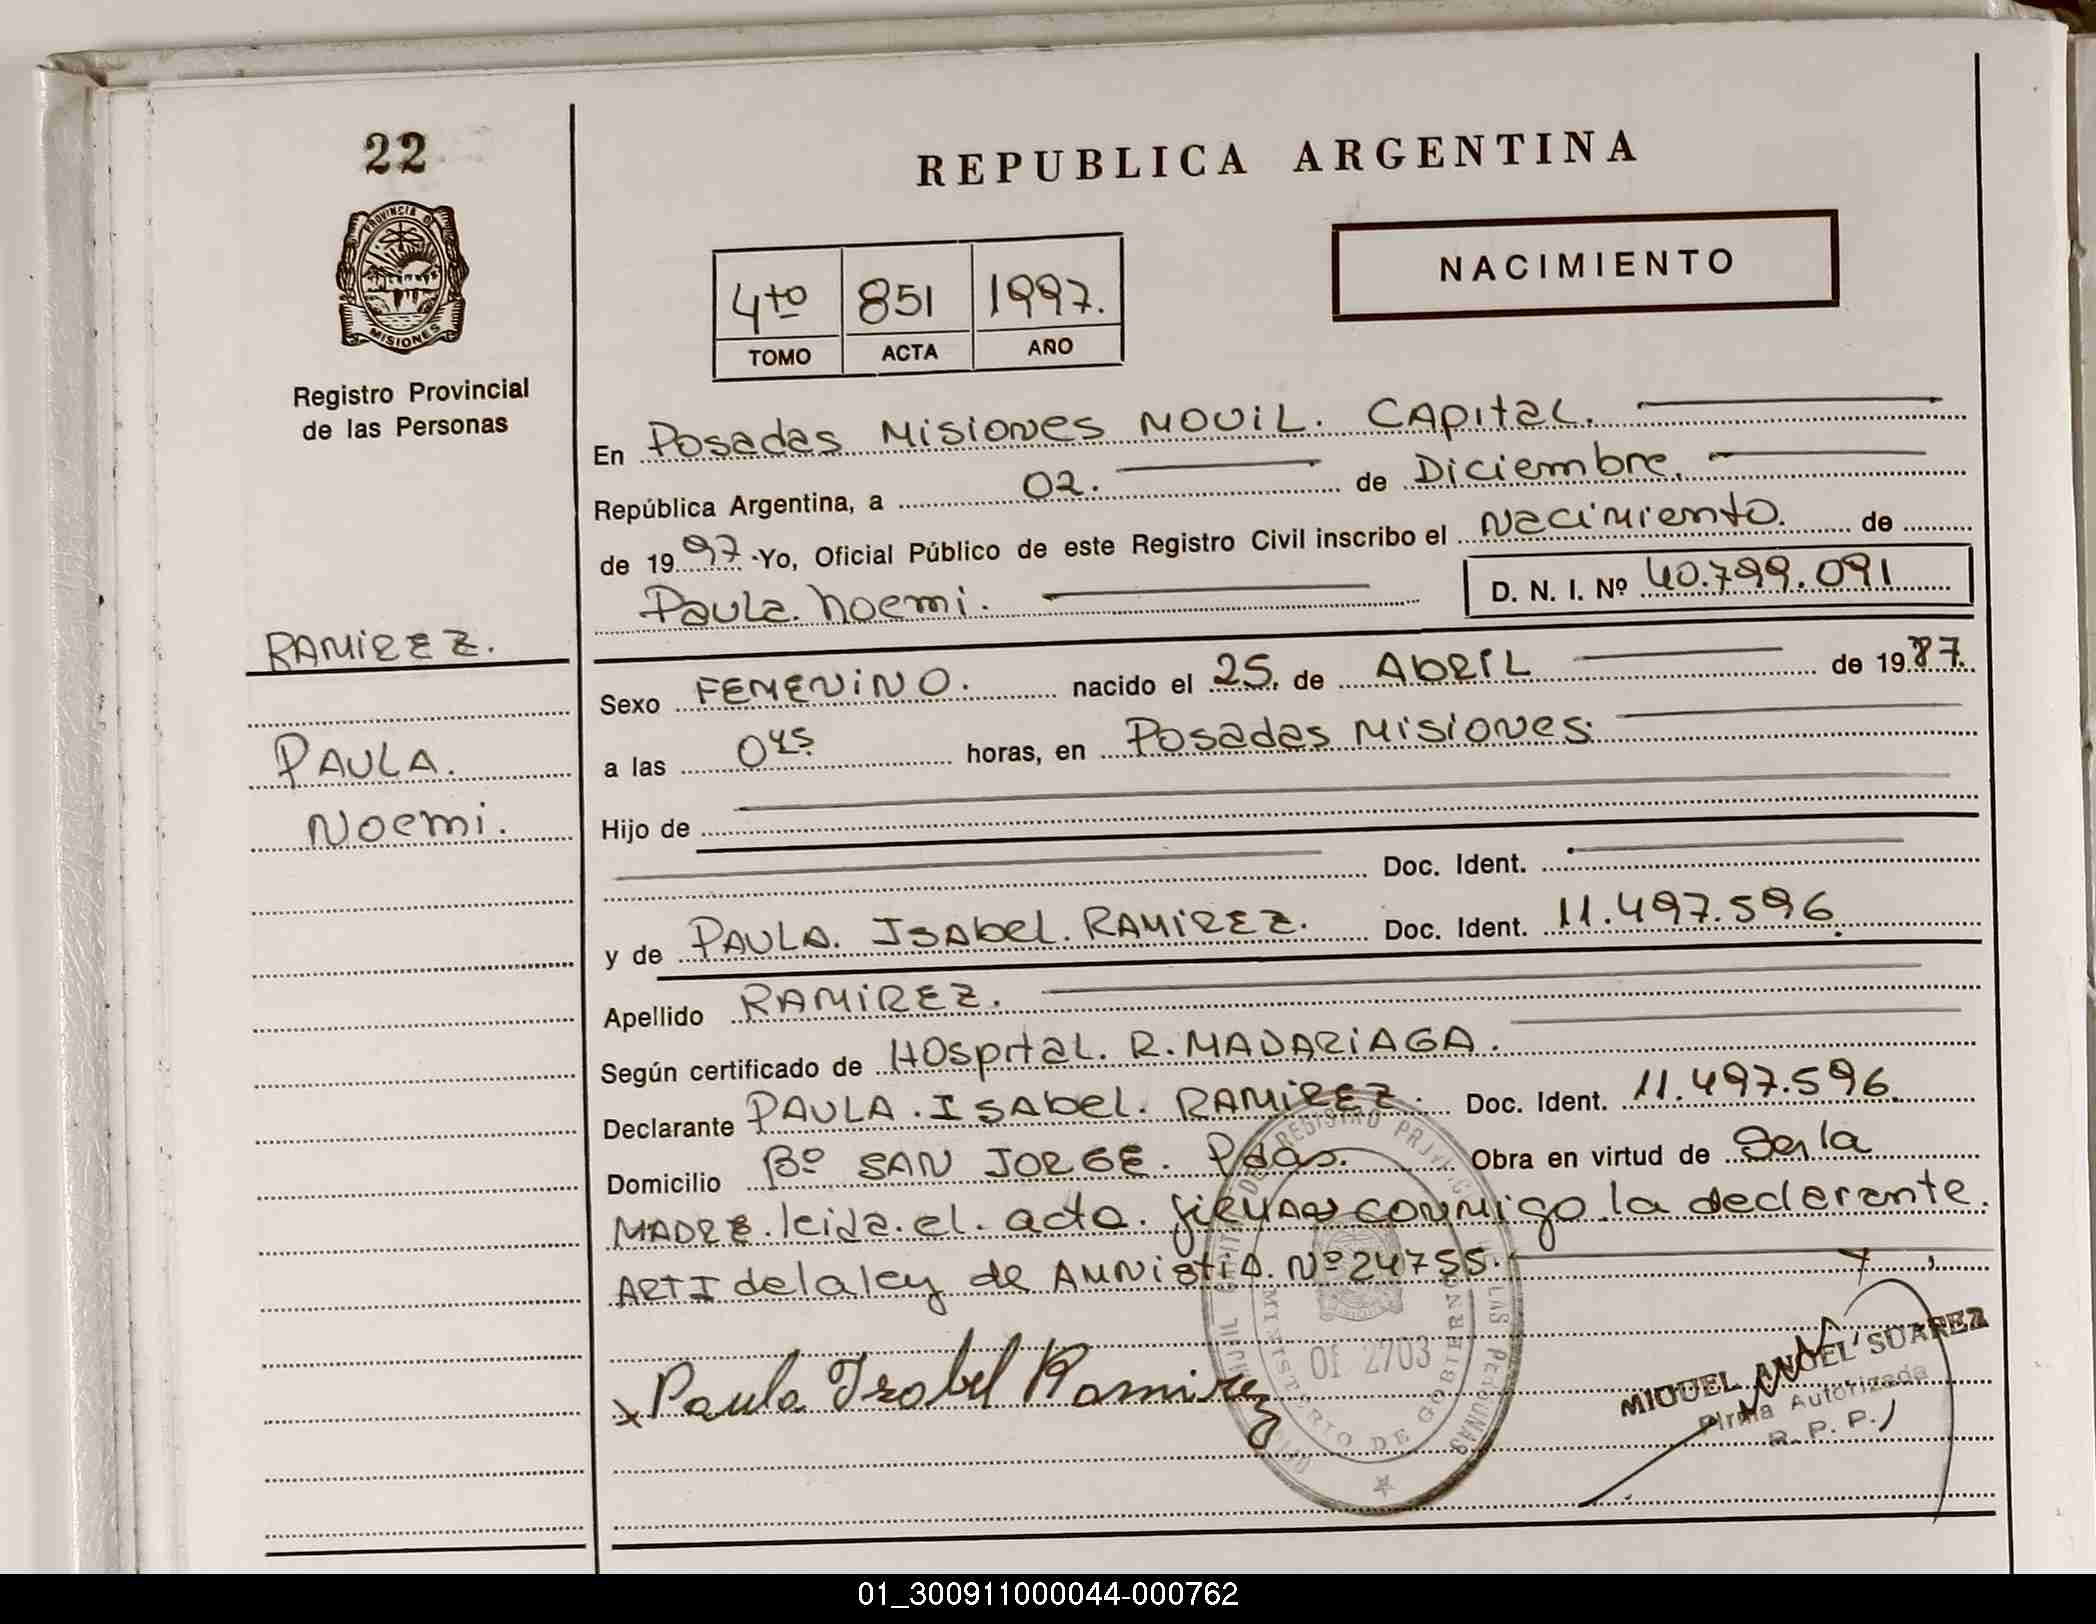 22
PROVINCIA DE
MISIONES
Registro Provincial
de las Personas
RAMIREZ.
PAULA.
Noemi.
REPUBLICA ARGENTINA
NACIMIENTO
4to 851 1997.
TOMO ACTA AÑO
En Posadas Misiones MOVIL. CAPITAL.
República Argentina, a 02. de Diciembre.
de 1997 Yo, Oficial Público de este Registro Civil inscribo el Nacimiento. de
Paula. Noemi. D. N. I. Nº 40.799.091
Sexo FEMENINO. nacido el 25. de ABRIL de 1987.
a las 0hs. horas, en Posadas Misiones.
Hijo de
Doc. Ident.
y de PAULA. ISAbel. RAMIREZ. Doc. Ident. 11.497.596.
Apellido RAMIREZ.
Según certificado de HOspital. R. MADARIAGA.
Declarante PAULA. ISAbel. RAMIREZ. Doc. Ident. 11.497.596.
Domicilio Bº SAN JORGE. Pdas. Obra en virtud de Ser la
MADRE. leida. el. acta. firman conmigo la declarante.
ART I de la ley de AMNistiA. Nº 24755.
x Paula Isabel Ramirez
MIGUEL ANGEL SUAREZ
Firma Autorizada
R. P. P.
MINISTERIO DE GOBIERNO
Of 2703
01_300911000044-000762